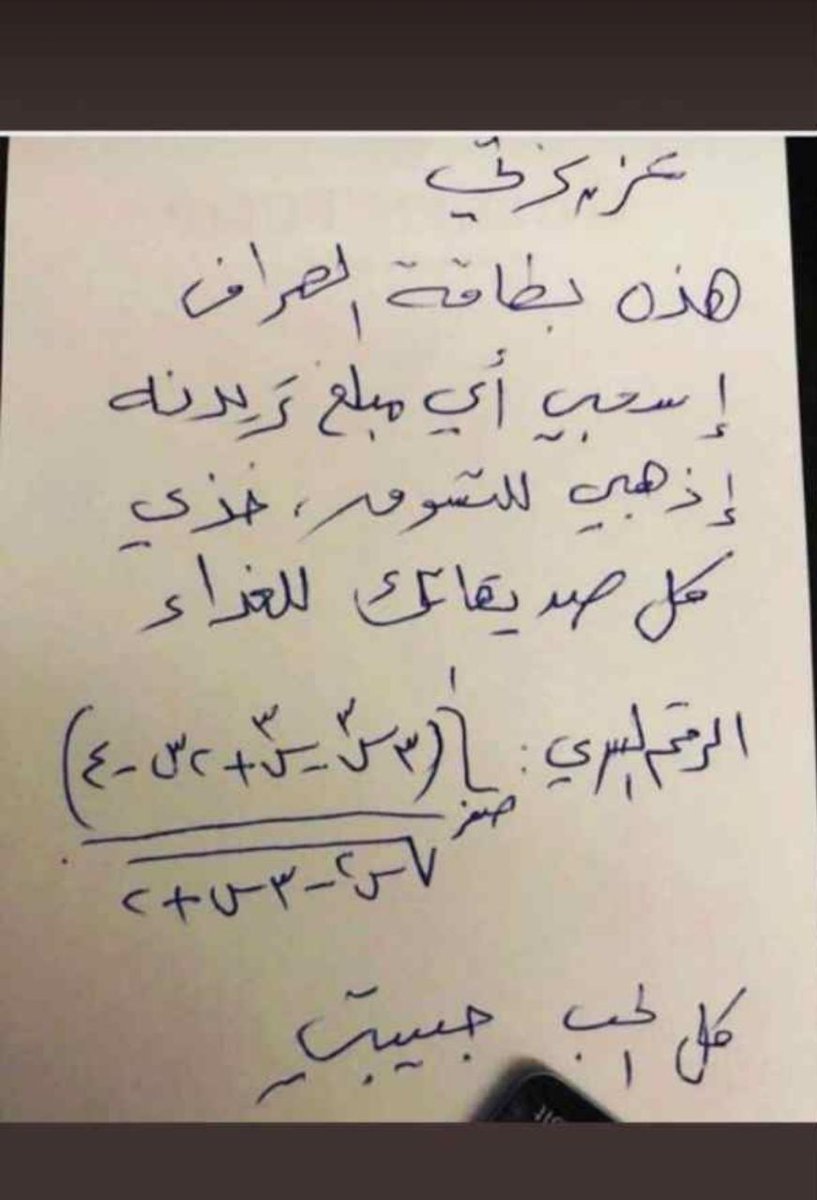 عزيزتي
هذه بطاقة الصراف
إسحبي أي مبلغ تريدنه
إذهبي للتسوق، خذي
كل صديقاتك للغداء
الرقم السري: ∫ من صفر إلى ١ (٣س٣ - س٣ + ٢س - ٤)
√س٢ - ٣س + ٢
كل الحب حبيبتي